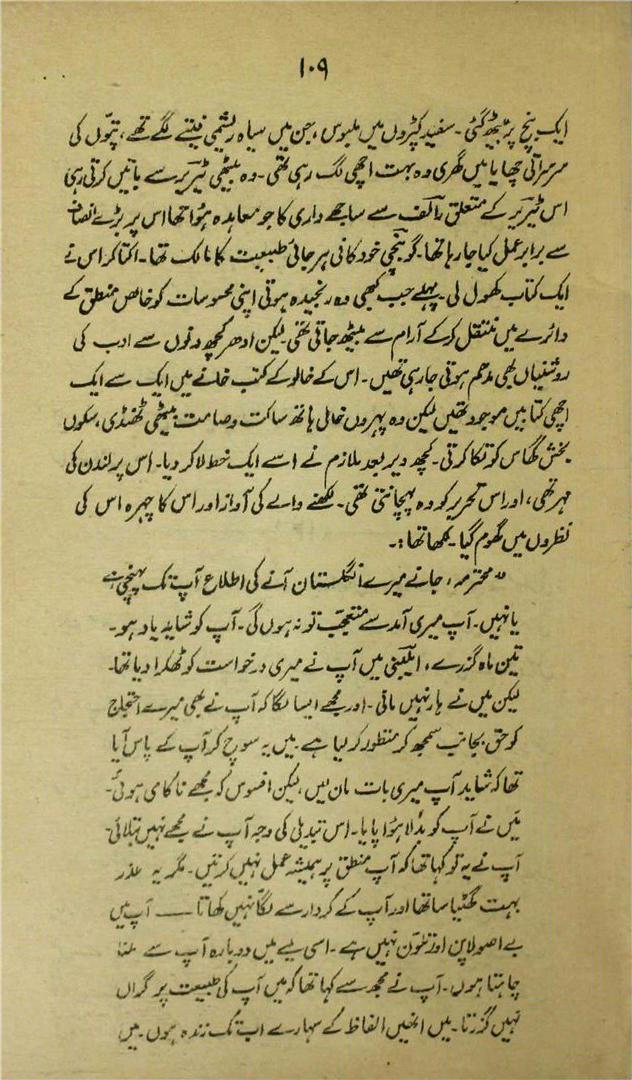 ۱۰۹
ایک بنچ پر بیٹھ گئی۔ سفید کپڑوں میں ملبوس، جن میں سیاہ ریشمی فیتے لگے تھے، پتّوں کی
سرسراتی چھایا میں گھری وہ بہت اچھی لگ رہی تھی۔ وہ بیٹھی ٹیریر سے باتیں کرتی رہی
اس ٹیریر کے متعلق رالف سے ساجھے داری کا جو معاہدہ ہوا تھا اس پر بڑے انصاف
سے برابر عمل کیا جا رہا تھا۔ گو بَنچی خود کافی ہرجائی طبیعت کا مالک تھا۔ اکتا کر اس نے
ایک کتاب کھول لی۔ پہلے جب کبھی وہ رنجیدہ ہوتی اپنی محسوسات کو خالص منطق کے
دائرے میں منتقل کرکے آرام سے بیٹھ جاتی تھی لیکن ادھر کچھ دنوں سے ادب کی
روشنیاں بھی مدھم ہوتی جا رہی تھیں۔ اس کے خالو کے کتب خانے میں ایک سے ایک
اچھی کتابیں موجود تھیں لیکن وہ پہروں خالی ہاتھ ساکت وصامت بیٹھی ٹھنڈی، سکون
بخش گھاس کو تکا کرتی۔ کچھ دیر بعد ملازم نے اسے ایک خط لا کر دیا۔ اس پر لندن کی
مہر تھی، اور اس تحریر کو وہ پہچانتی تھی۔ لکھنے والے کی آواز اور اس کا چہرہ اس کی
نظروں میں گھوم گیا۔ لکھا تھا:۔
"محترمہ، جانے میرے انگلستان آنے کی اطلاع آپ تک پہنچی ہے
یا نہیں۔ آپ میری آمد سے متعجب تو نہ ہوں گی۔ آپ کو شاید یاد ہو۔
تین ماہ گزرے، ایلبنی میں آپ نے میری درخواست کو ٹھکرا دیا تھا۔
لیکن میں نے ہار نہیں مانی۔ اور مجھے ایسا لگا کہ آپ نے بھی میرے احتجاج
کو حق بجانب سمجھ کر منظور کر لیا ہے۔ میں یہ سوچ کر آپ کے پاس آیا
تھا کہ شاید آپ میری بات مان لیں، لیکن افسوس کہ مجھے ناکامی ہوئی۔
میں نے آپ کو بدلا ہوا پایا۔ اس تبدیلی کی وجہ آپ نے مجھے نہیں بتلائی۔
آپ نے یہ تو کہا تھا کہ آپ منطق پر ہمیشہ عمل نہیں کرتیں۔ مگر یہ عذر
بہت گھٹیا سا تھا اور آپ کے کردار سے لگّا نہیں کھاتا ـــــ آپ میں
بے اصولا پن اور تلون نہیں ہے۔ اسی لیے میں دوبارہ آپ سے ملنا
چاہتا ہوں۔ آپ نے مجھ سے کہا تھا کہ میں آپ کی طبیعت پر گراں
نہیں گزرتا۔ میں انہیں الفاظ کے سہارے اب تک زندہ ہوں۔ میں